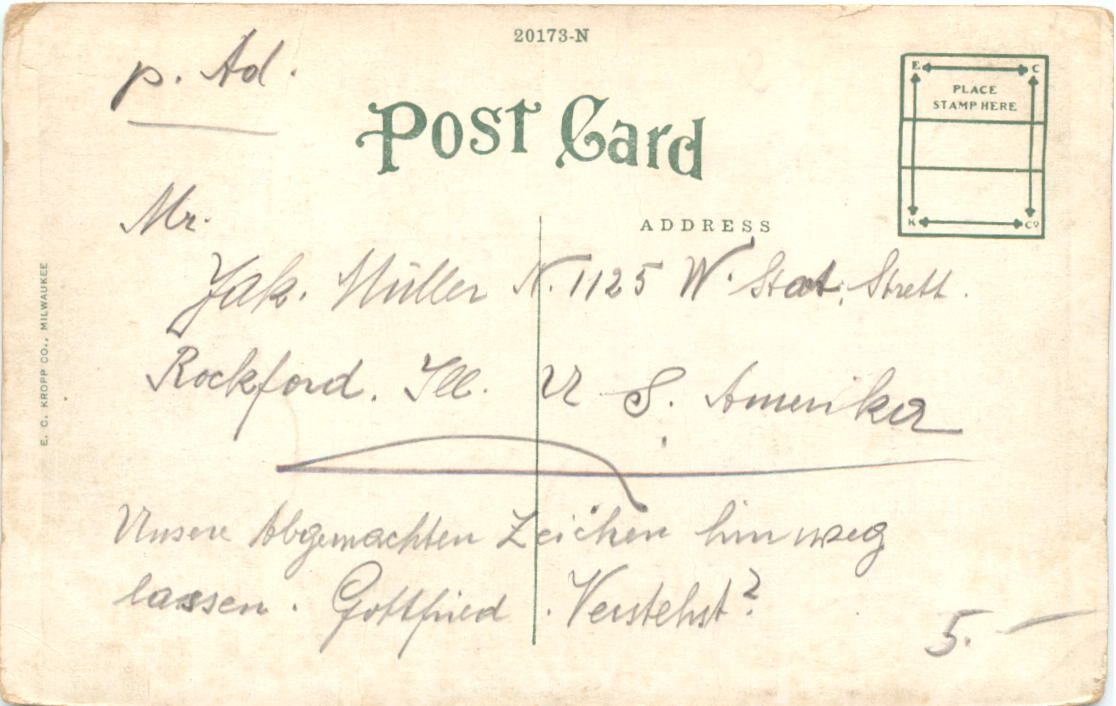 20173-N
p. Ad.
E C
PLACE
STAMP HERE
K Co
POST CARD
ADDRESS
Mr.
Jak. Müller N. 1125 W. Stat. Strett.
Rockford. Ill. U S. Amerika
E. C. KROPP CO., MILWAUKEE
Unsere Abgemachten Zeichen hinweg
lassen. Gottfried. Verstehst?
5. —